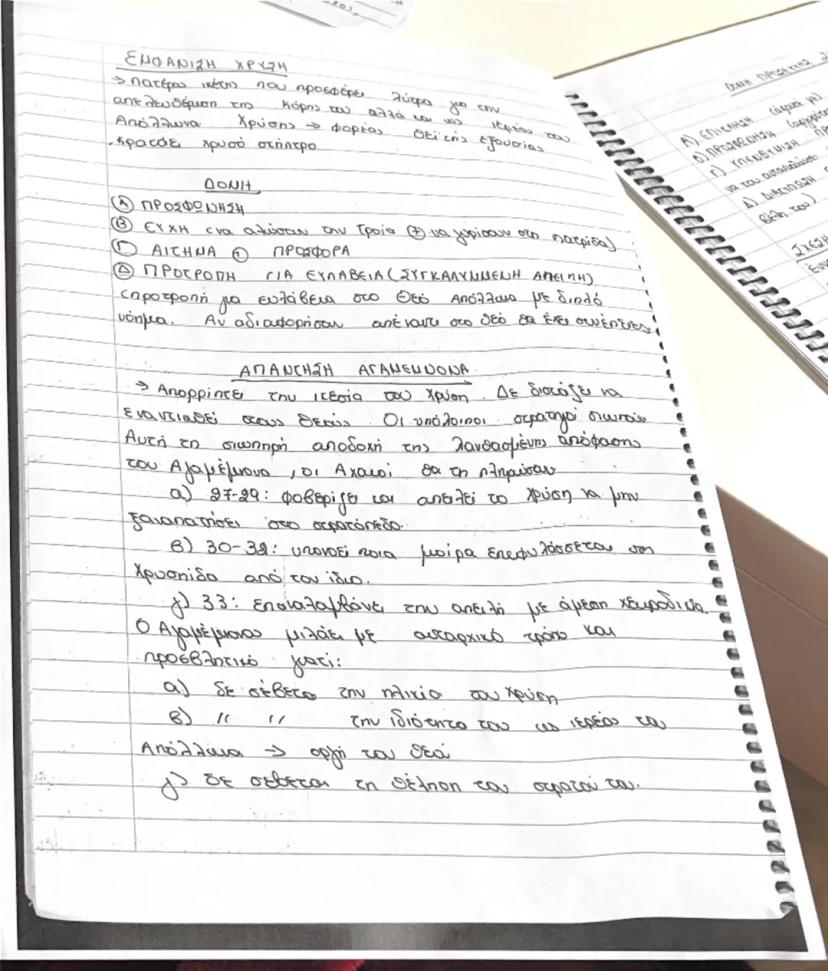 ΕΜΦΑΝΙΣΗ ΧΡΥΣΗ
→ πατέρας ικέτης που προσφέρει λύτρα για την
απελευθέρωση της κόρης του αλλά και ως ιερέας του
Απόλλωνα Χρύσης → φορέας θεϊκής εξουσίας
κρατάει χρυσό σκήπτρο
ΔΟΜΗ
Α ΠΡΟΣΦΩΝΗΣΗ
Β ΕΥΧΗ (να αλώσουν την Τροία + να γυρίσουν στη πατρίδα)
Γ ΑΙΤΗΜΑ + ΠΡΟΣΦΟΡΑ
Δ ΠΡΟΤΡΟΠΗ ΓΙΑ ΕΥΛΑΒΕΙΑ (ΣΥΓΚΑΛΥΜΜΕΝΗ ΑΠΕΙΛΗ)
(προτροπή για ευλάβεια στο Θεό Απόλλωνα με διπλό
νόημα. Αν αδιαφορήσουν απέναντι στο θεό θα έχει συνέπειες
ΑΠΑΝΤΗΣΗ ΑΓΑΜΕΜΝΟΝΑ
→ Απορρίπτει την ικεσία του Χρύση. Δε διστάζει να
εναντιωθεί στους Θεούς. Οι υπόλοιποι στρατηγοί σιωπούν
Αυτή τη σιωπηρή αποδοχή της λανθασμένης απόφασης
του Αγαμέμνονα, οι Αχαιοί θα τη πληρώσουν
α) 27-29: φοβερίζει και απειλεί το Χρύση να μην
ξαναπατήσει στο στρατόπεδο.
β) 30-32: υπονοεί ποια μοίρα επιφυλάσσεται στη
Χρυσηίδα από τον ίδιο.
γ) 33: επαναλαμβάνει την απειλή με άμεση χειροδικία.
Ο Αγαμέμνονας μιλάει με αυταρχικό τρόπο και
προσβλητικό γιατί:
α) δε σέβεται την ηλικία του Χρύση
β) " " την ιδιότητα του ως ιερέας του
Απόλλωνα → οργή του θεού
γ) δε σέβεται τη θέληση του στρατού του.
Α) ΕΠΙΚΛΗΣΗ
Β) ΠΡΟΣΦΩΝΗΣΗ
Γ) ΥΠΕΝΘΥΜΙΣΗ
Δ) ΔΙΑΤΥΠΩΣΗ
ΣΧΕΣΗ